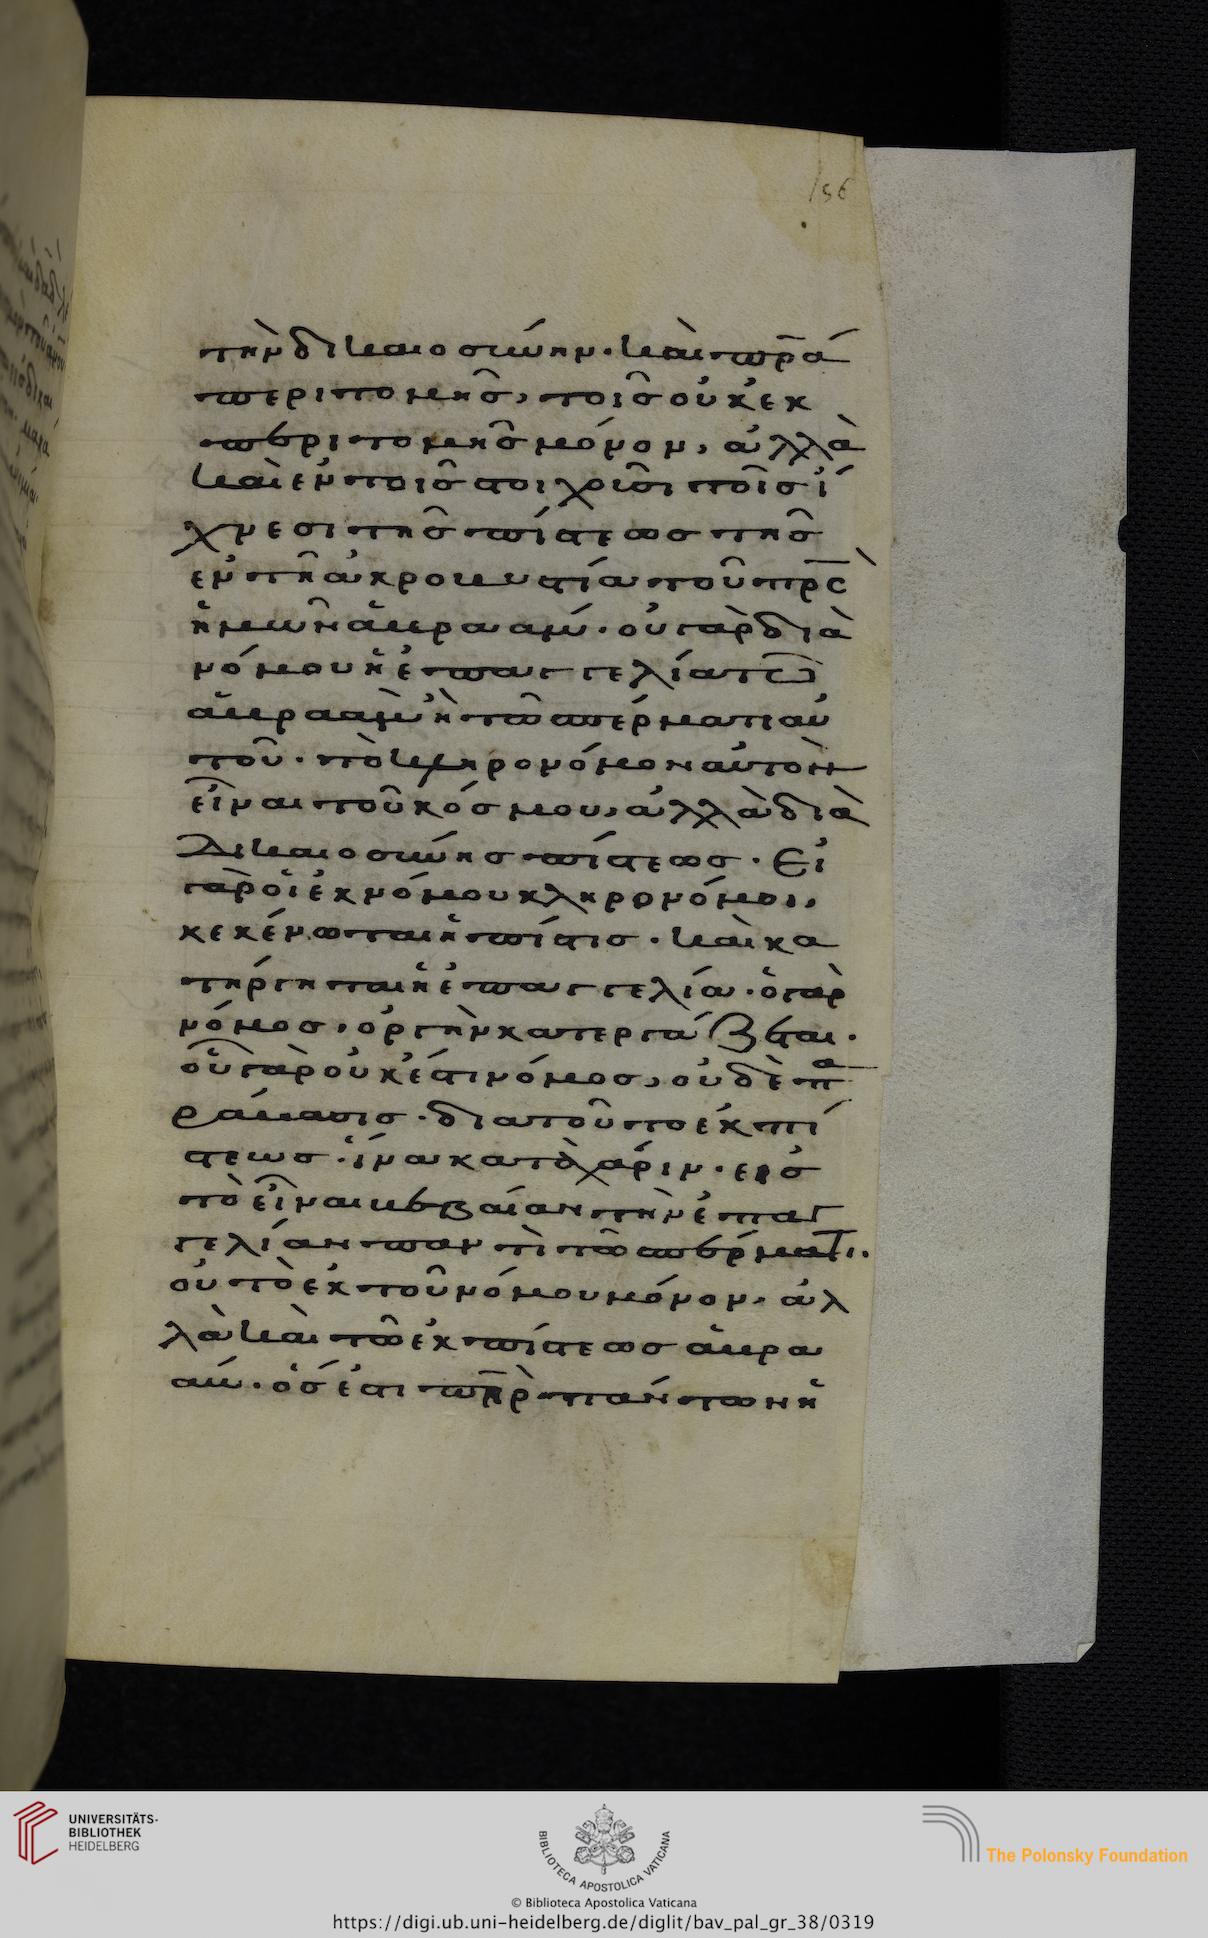 156
τὴν δικαιοσύνην· καὶ π̅ρ̅α
περιτομῆς, τοῖς οὐκ ἐκ
περιτομῆς μόνον, ἀλλὰ
καὶ ἐν τοῖς στοιχοῦσι τοῖς ἴ
χνεσι τῆς πίστεως τῆς
ἐν τῇ ἀκροβυστία τοῦ π̅ρ̅ς
ἡμῶν ἀβραάμ· οὐ γὰρ διὰ
νόμου ἡ ἐπαγγελία τῶ
ἀβραὰμ ἢ τῶ σπέρματι αὐ
τοῦ· τὸ κληρονόμον αὐτὸν
εἶναι τοῦ κόσμου, ἀλλὰ διὰ
δικαιοσύνης πίστεως· Εἰ
γὰρ οἱ ἐκ νόμου κληρονόμοι,
κεκένωται ἡ πίστις· καὶ κα
τήργηται ἡ ἐπαγγελία· ὁ γὰρ
νόμος, ὀργὴν κατεργάζεται·
οὗ γὰρ οὐκ ἔστι νόμος, οὐδὲ πα
ράβασις· διατοῦτο ἐκ πί
στεως· ἵνα κατὰ χάριν· εἰς
τὸ εἶναι βεβαίαν τὴν ἐπαγ
γελίαν παντὶ τῶ σπέρματι·
οὐ τὸ ἐκ τοῦ νόμου μόνον, ἀλ
λὰ καὶ τῶ ἐκ πίστεως ἀβρα
άμ· ὅς ἐστι π̅η̅ρ πάντων ἡ
UNIVERSITÄTS-
BIBLIOTHEK
HEIDELBERG
BIBLIOTECA APOSTOLICA VATICANA
The Polonsky Foundation
© Biblioteca Apostolica Vaticana
https://digi.ub.uni-heidelberg.de/diglit/bav_pal_gr_38/0319